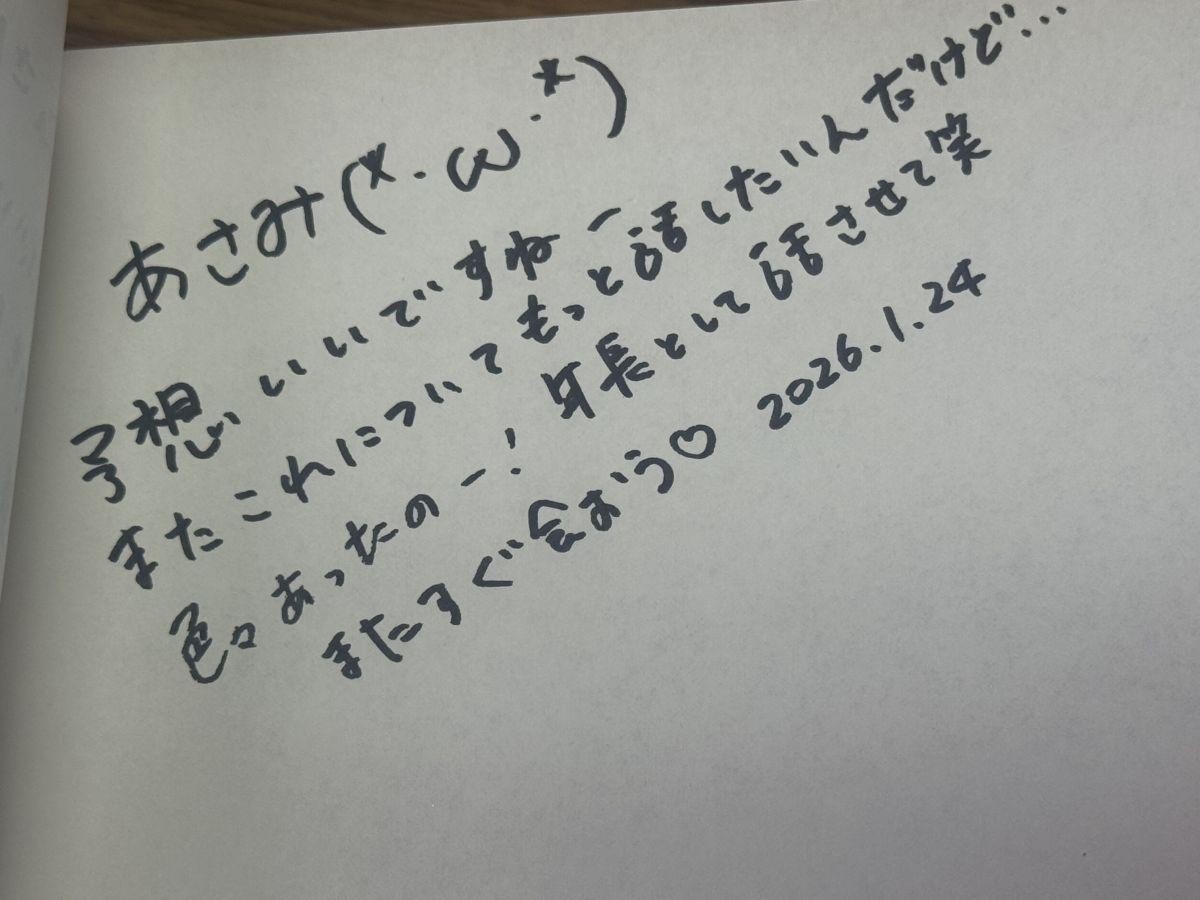 あさみ(*・ω・*)
予想、いいですねー
またこれについてもっと話したいんだけど…
色々あったのー!年長として話させて笑
またすぐ会おう♡ 2026.1.24